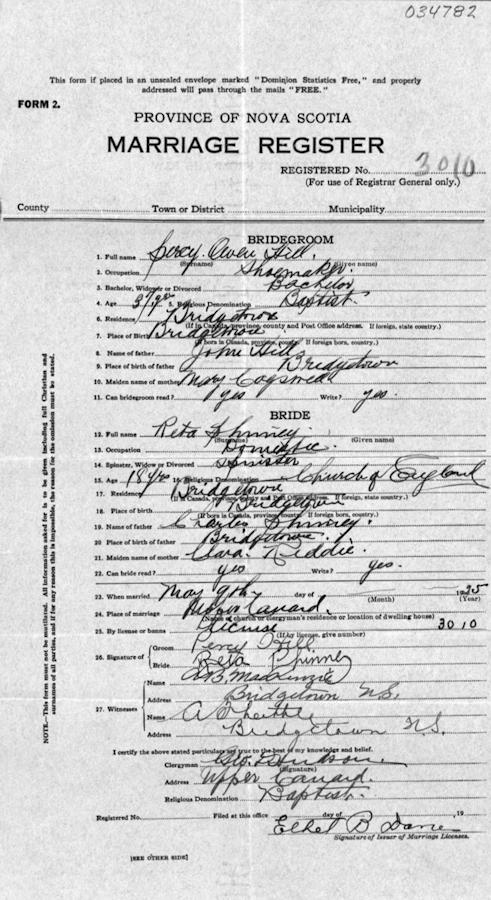 034782
This form if placed in an unsealed envelope marked "Dominion Statistics Free," and properly
addressed will pass through the mails "FREE."
FORM 2.
PROVINCE OF NOVA SCOTIA
MARRIAGE REGISTER
REGISTERED No. 3010
(For use of Registrar General only.)
County Town or District Municipality
BRIDEGROOM
1. Full name Percy Owen Hill.
(Surname) (Given name)
2. Occupation Shoemaker.
3. Bachelor, Widower or Divorced Bachelor
4. Age 37 yrs 5. Religious Denomination Baptist.
6. Residence Bridgetown
(If in Canada, province, county and Post Office address. If foreign, state country.)
7. Place of Birth Bridgetown
(If born in Canada, province, county. If foreign born, country.)
8. Name of father John Hill
9. Place of birth of father Bridgetown
10. Maiden name of mother Mary Cogswell
11. Can bridegroom read? yes Write? yes.
BRIDE
12. Full name Reta Phinney
(Surname) (Given name)
13. Occupation Domestic
14. Spinster, Widow or Divorced Spinster
15. Age 18 yrs 16. Religious Denomination Church of England
17. Residence Bridgetown
(If in Canada, province, county and Post Office address. If foreign, state country.)
18. Place of birth Bridgetown
(If born in Canada, province, county. If foreign born, country.)
19. Name of father Charles Phinney.
20. Place of birth of father Bridgetown.
21. Maiden name of mother Clara Kiddie.
22. Can bride read? yes Write? yes.
23. When married May 9th day of 1925
(Month) (Year)
24. Place of marriage Canard.
(Name of church or clergyman's residence or location of dwelling house)
25. By license or banns License 3010
(If by license, give number)
26. Signature of Groom Percy Hill
Bride Reta Phinney
27. Witnesses
Name MacKenzie
Address Bridgetown N.S.
Name A
Address Bridgetown N.S.
I certify the above stated particulars are true to the best of my knowledge and belief.
Clergyman Hudson.
(Signature)
Address Upper Canard.
Religious Denomination Baptist.
Registered No. Filed at this office day of 19
Ethel B
Signature of Issuer of Marriage Licenses.
[SEE OTHER SIDE]
NOTE.—This form must not be mutilated. All information asked is to be given including full Christian and
surnames of all parties, and if for any reason this is impossible, the reason for the omission must be stated.